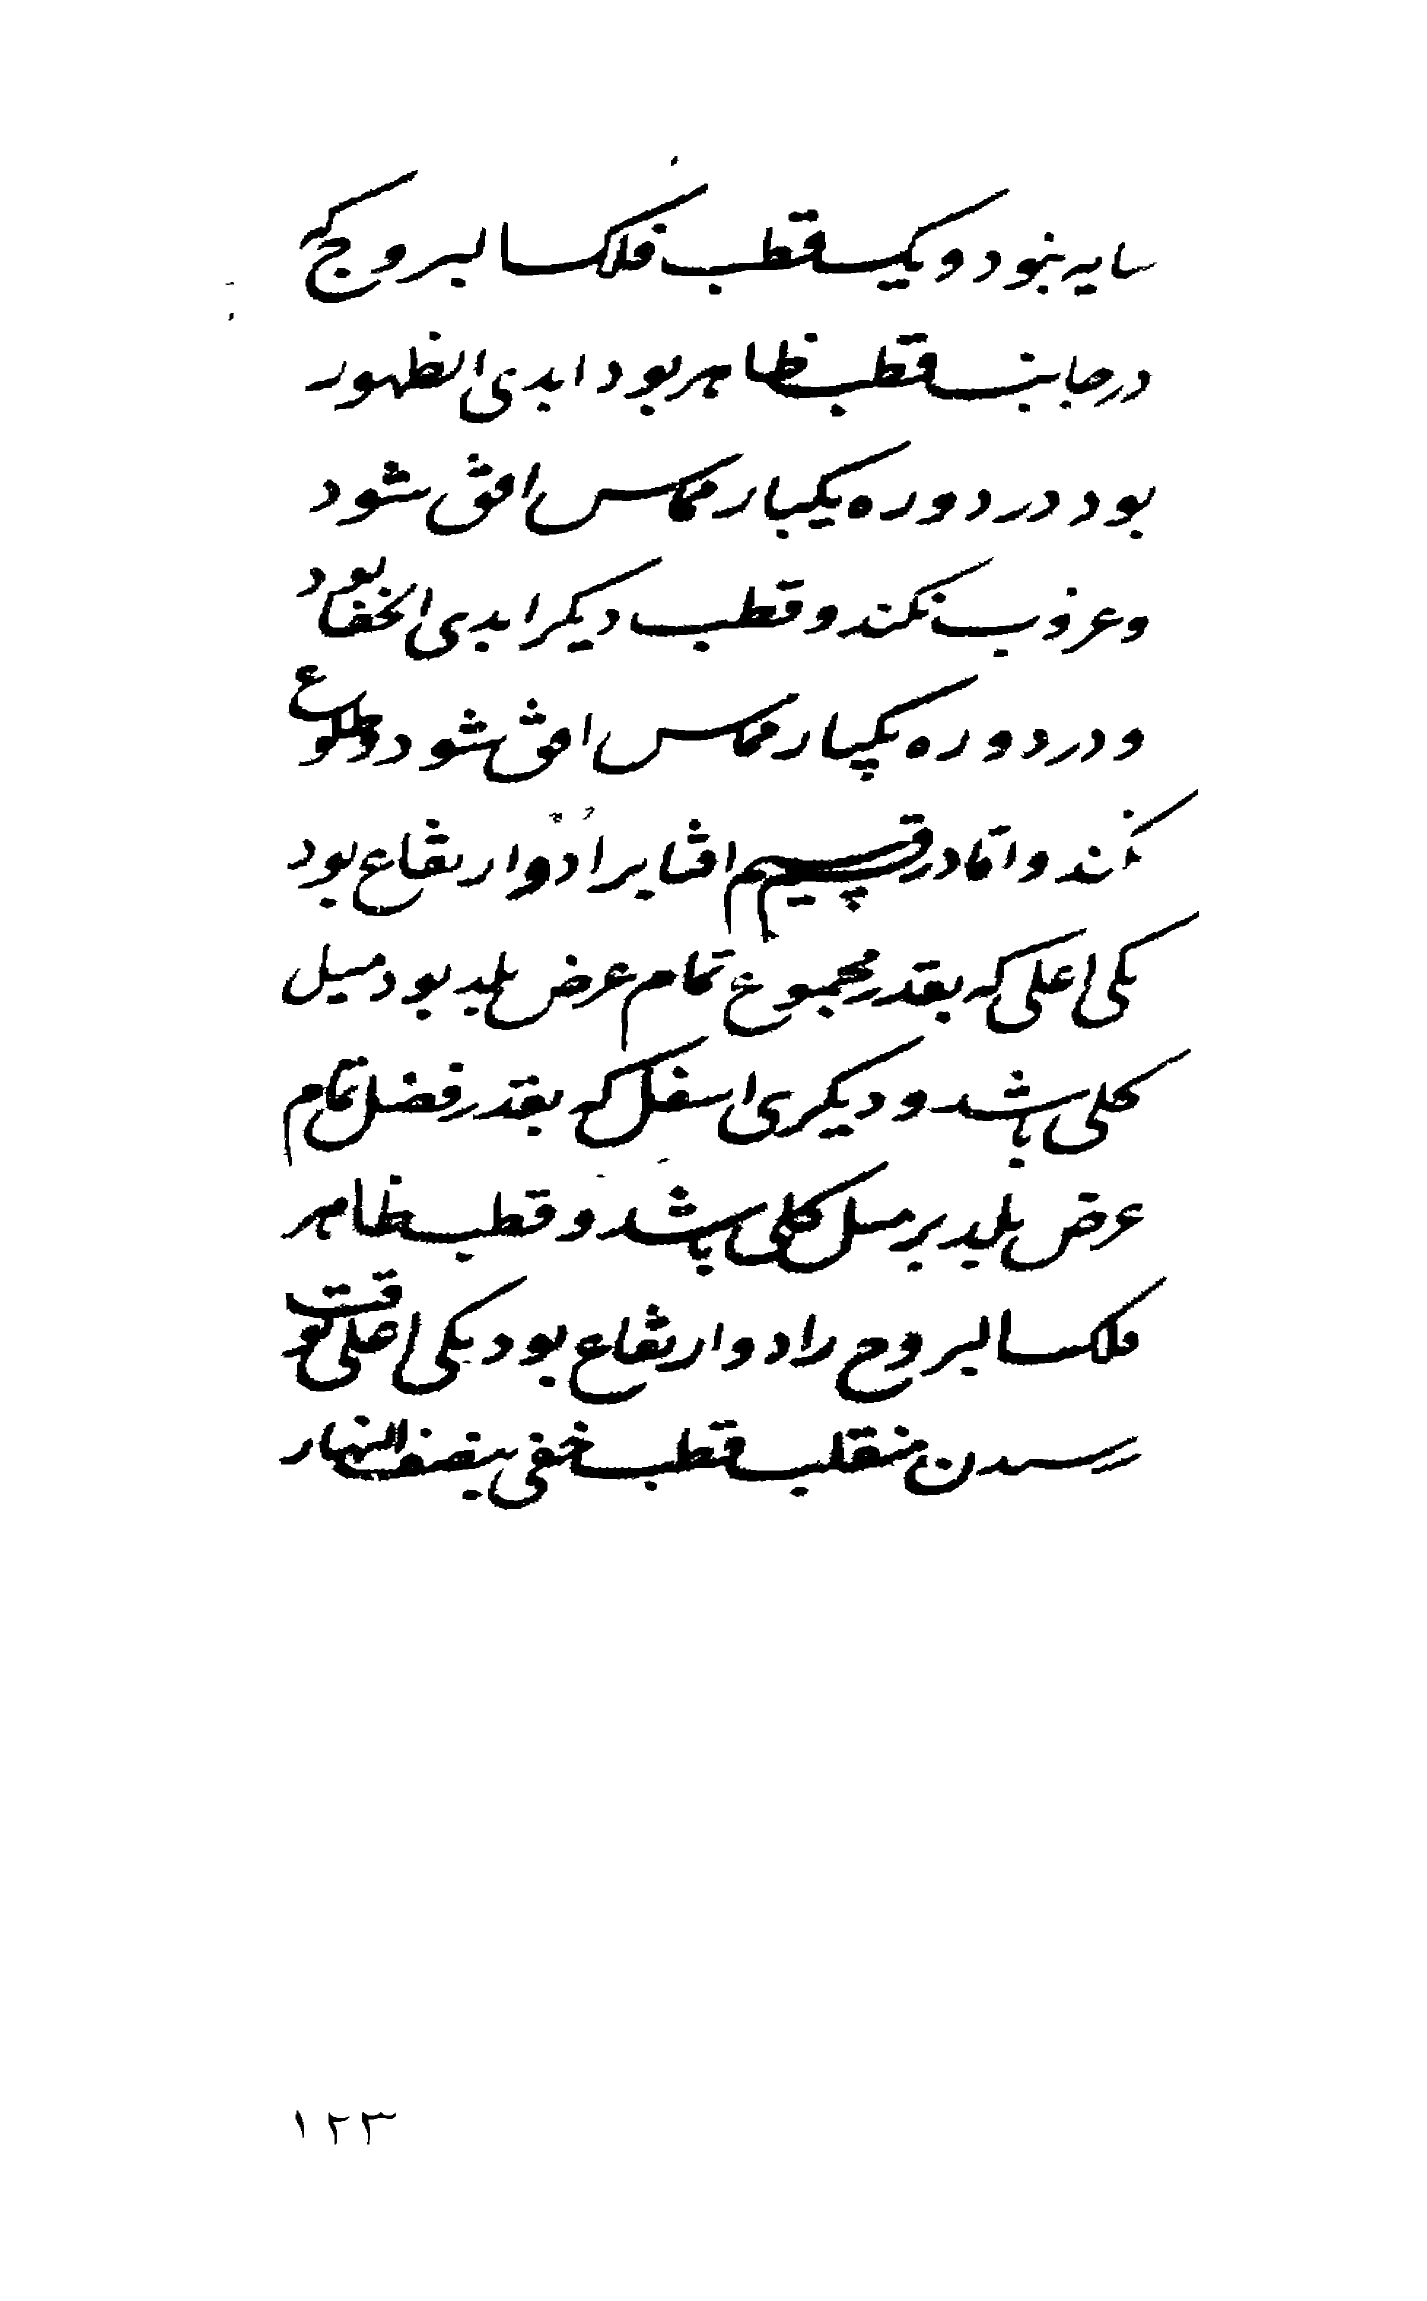 سایه نبود و یک قطب فلک البروج که
در جانب قطب ظاهر بود ابدی الظهور
بود در دوره یکبار مماس افق شود
و غروب نکند و قطب دیکر ابدی الخفا بود
و در دوره یکبار مماس افق شود و طلوع
نکند و اما در قسیم افتابرا دو ارتفاع بود
یکی اعلی که بقدر مجموع تمام عرض بلد بود میل
کلی باشد و دیکری اسفل که بقدر فضل تمام
عرض بلد بر میل کلی باشد و قطب ظاهر
فلک البروج را دو ارتفاع بود یکی اعلی وقت
رسیدن منقلب قطب خفی بنصف النهار
۱۲۳